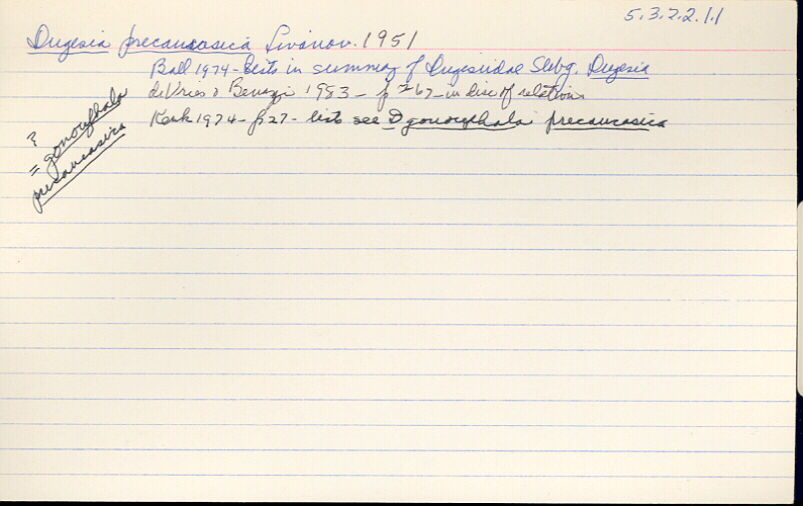 5.3.2.2.1.1
Dugesia precaucasica Livanov. 1951
Ball 1974 - lists in summary of Dugesiidae Subg. Dugesia
deVries & Benazzi 1983 - p 267 - in disc of relations
Kenk 1974 - p 27 - lists see D gonocephala precaucasica
?
= gonocephala
precaucasica